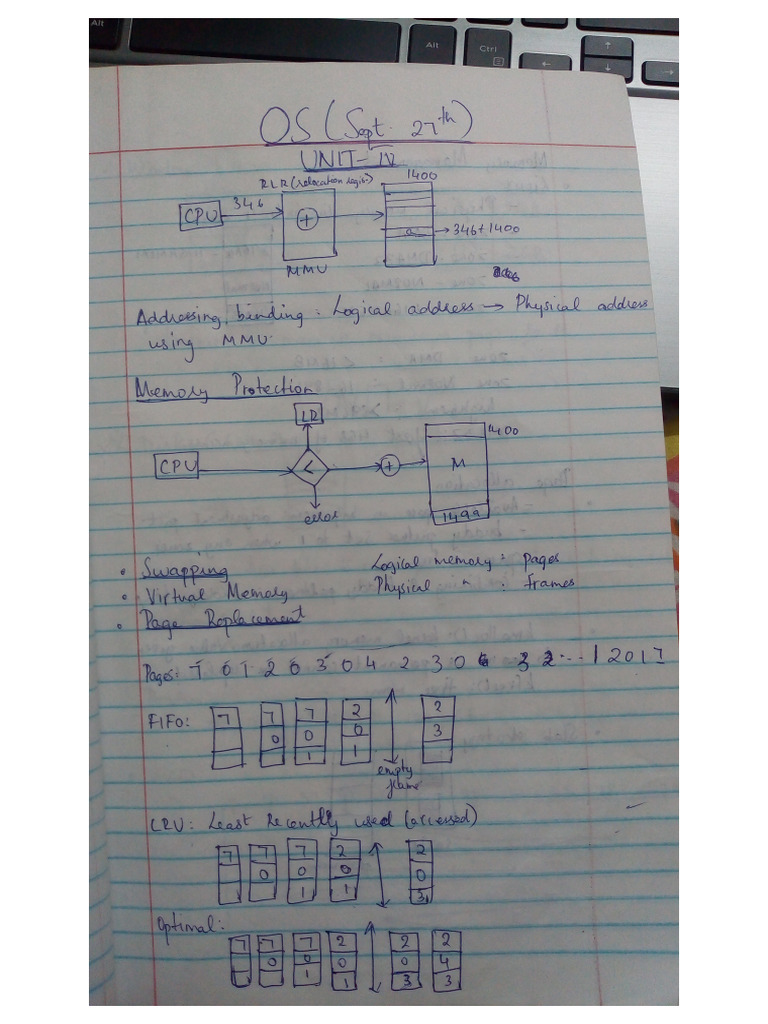 OS (Sept. 27th)
UNIT-IV
RLR (relocation logic)
1400
CPU
346
+
a
346+1400
MMU
Addressing binding: Logical address → Physical address
using MMU.
Memory Protection
LR
1400
CPU
<
+
M
error
1499
• Swapping
Logical memory: pages
• Virtual Memory
Physical " : frames
• Page Replacement
Pages: 7 0 1 2 0 3 0 4 2 3 0 3 2 ... 1 2 0 1 7
FIFO:
7 7 7 2 2
0 0 0 3
1 1
empty
frame
LRU: Least Recently used (accessed)
7 7 7 2 2
0 0 0 0
1 1 3
Optimal:
7 7 7 2 2 2
0 0 0 0 4
1 1 3 3
Alt
Alt
Ctrl